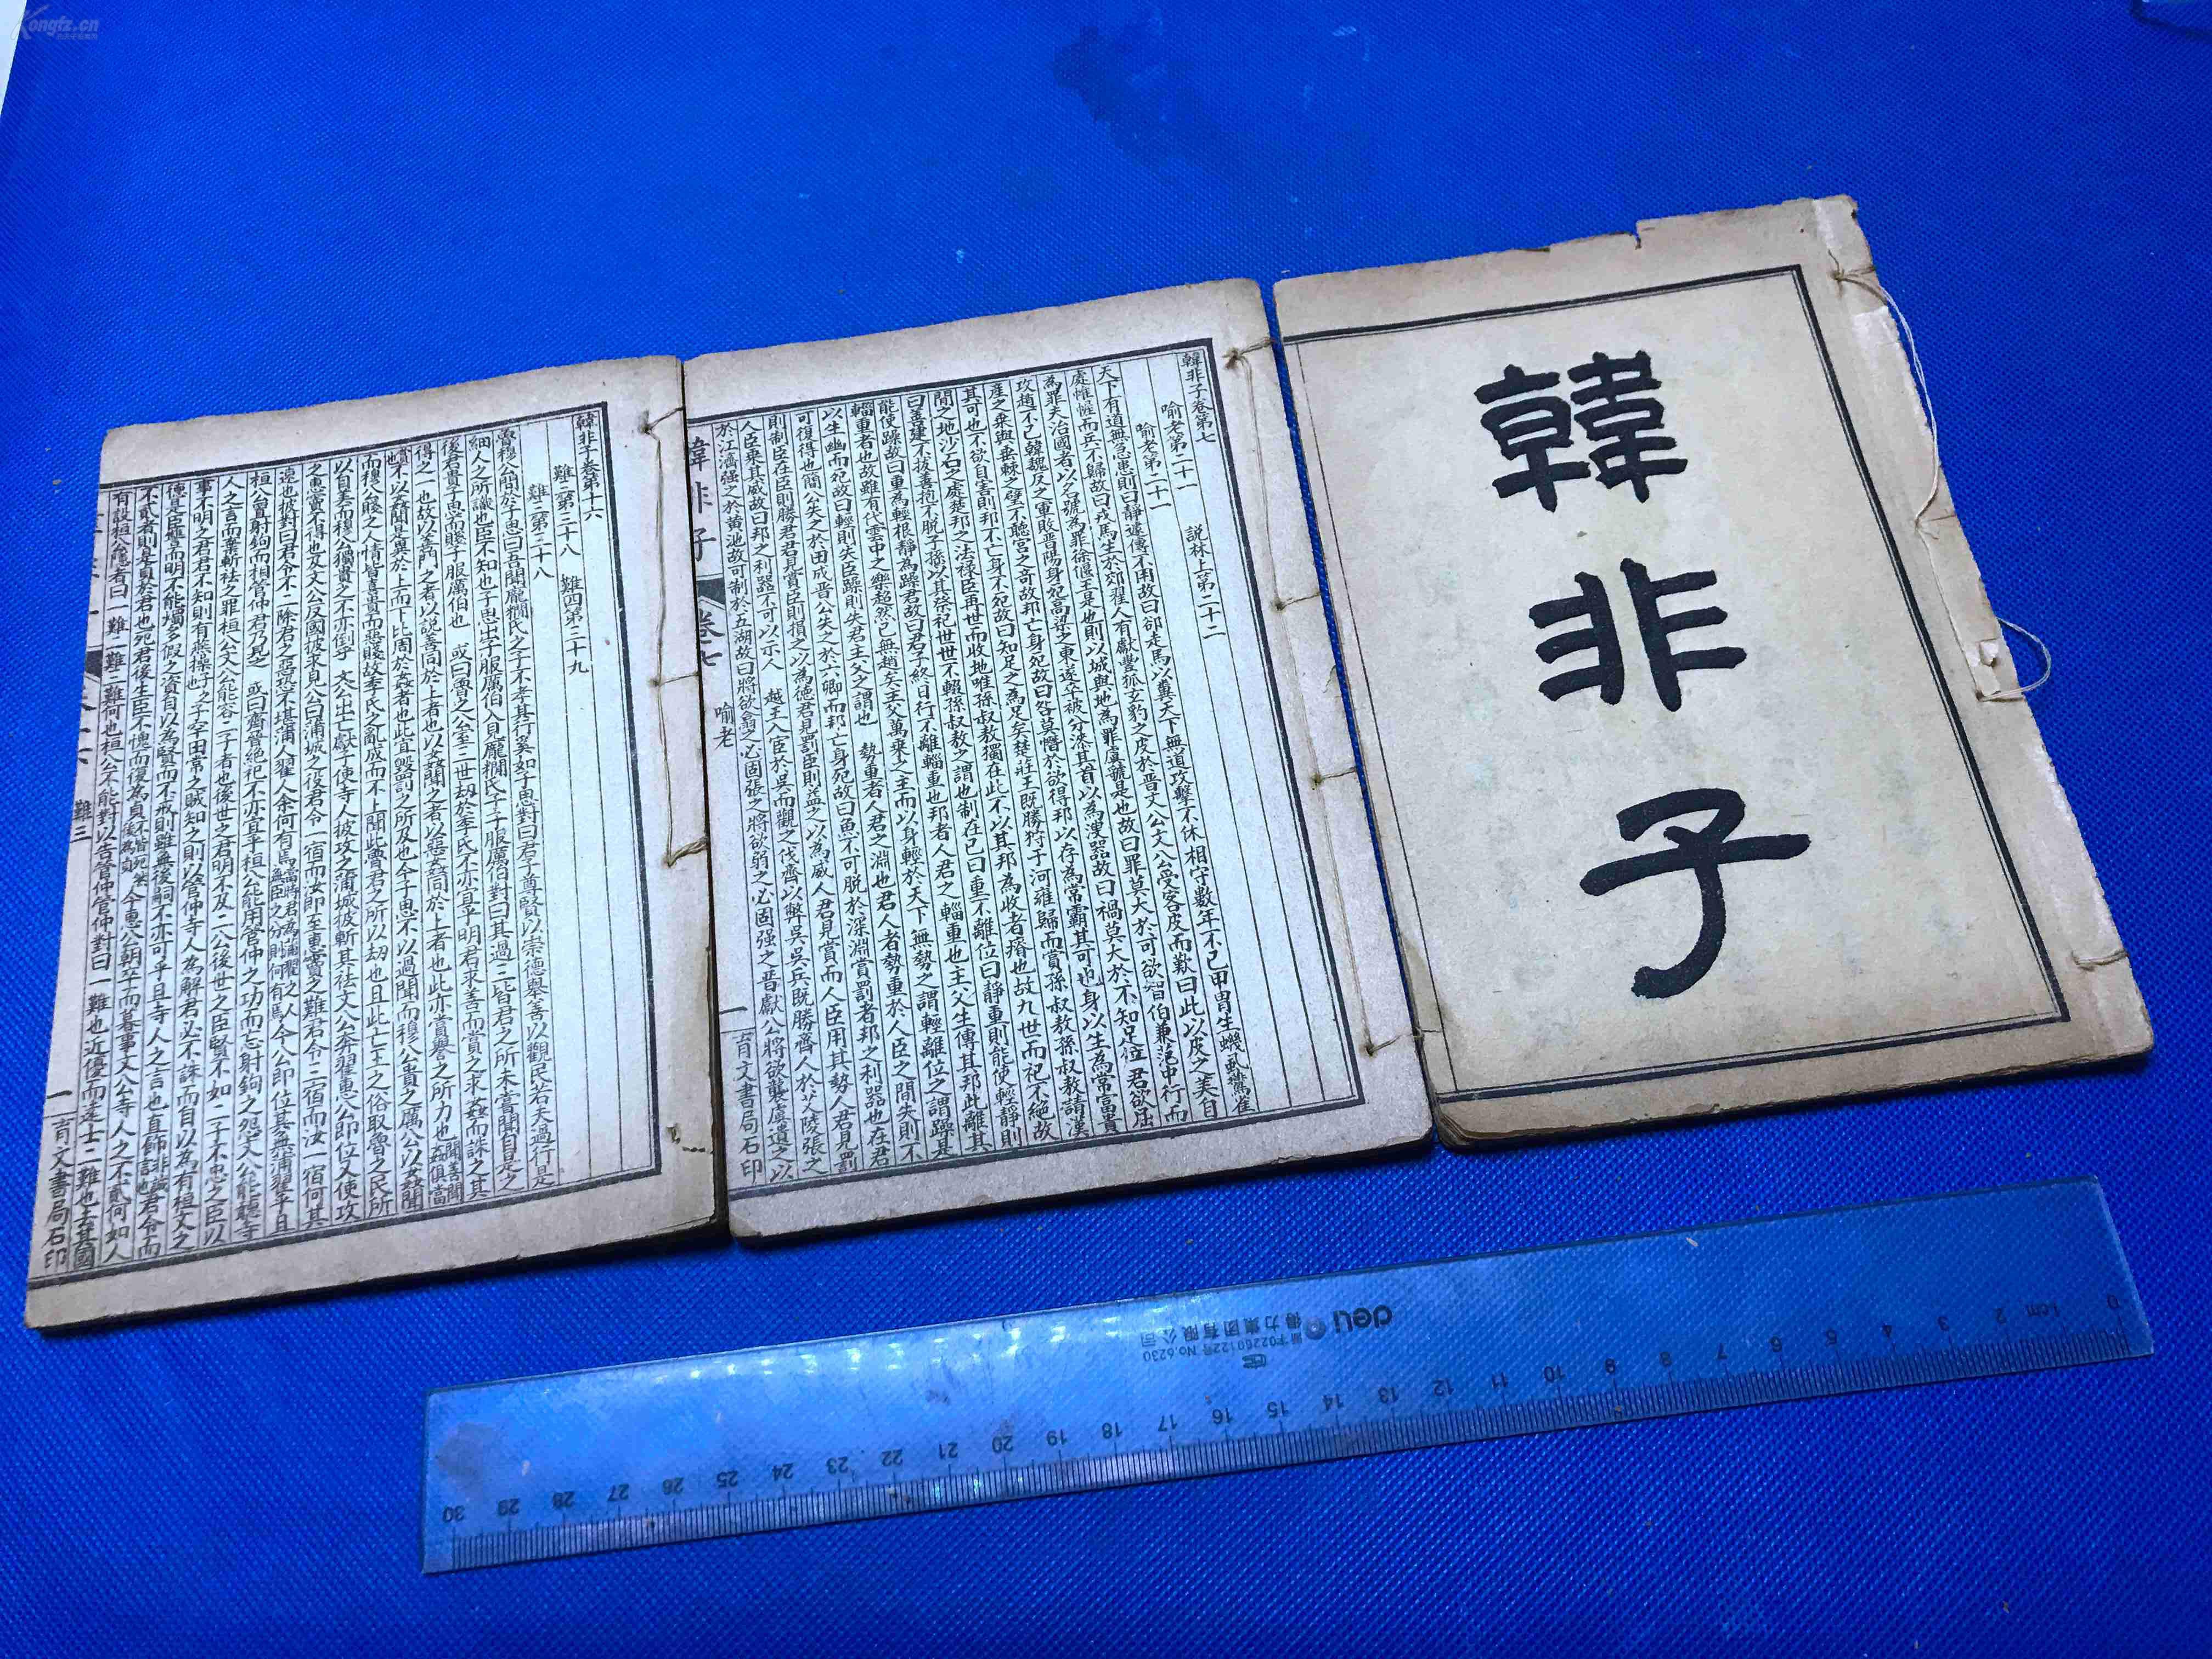 韓非子
韓非子卷第七
喻老第二十一 說林上第二十二
喻老第二十一
天下有道無急患則曰靜遽傳不用故曰郤走馬以糞天下無道攻擊不休相守數年不已甲冑生蟣虱鷰雀
處帷幄而兵不歸故曰戎馬生於郊翟人有獻豐狐玄豹之皮於晉文公文公受客皮而歎曰此以皮之美自
為罪夫治國者以名號為罪徐偃王是也則以城與地為罪虞虢是也故曰罪莫大於可欲智伯兼范中行而
攻趙不已韓魏反之軍敗晉陽身死高梁之東遂卒被分漆其首以為溲器故曰禍莫大於不知足虞君欲屈
產之乘與垂棘之璧不聽宮之奇故邦亡身死故曰咎莫憯於欲得邦以存為常霸其可也身以生為常富貴
其可也不欲自害則邦不亡身不死故曰知足之為足矣楚莊王既勝狩于河雍歸而賞孫叔敖孫叔敖請漢
間之地沙石之處楚邦之法祿臣再世而收地唯孫叔敖獨在此不以其邦為收者瘠也故九世而祀不絕故
曰善建不拔善抱不脫子孫以其祭祀世世不輟孫叔敖之謂也制在己曰重不離位曰靜重則能使輕靜則
能使躁故曰重為輕根靜為躁君故曰君子終日行不離輜重也邦者人君之輜重也主父生傳其邦此離其
輜重者也故雖有代雲中之樂超然已無趙矣主父萬乘之主而以身輕於天下無勢之謂輕離位之謂躁是
以生幽而死故曰輕則失臣躁則失君主父之謂也 勢重者人君之淵也君人者勢重於人臣之間失則不
可復得也簡公失之於田成晉公失之於六卿而邦亡身死故曰魚不可脫於深淵賞罰者邦之利器也在君
則制臣在臣則勝君君見賞臣則損之以為德君見罰臣則益之以為威人君見賞而人臣用其勢人君見罰
人臣乘其威故曰邦之利器不可以示人 越王入宦於吳而觀之伐齊以弊吳吳兵既勝齊人於艾陵張之
於江濟强之於黃池故可制於五湖故曰將欲翕之必固張之將欲弱之必固强之晉獻公將欲襲虞遺之以
韓非子 卷七 喻老 一 育文書局石印
韓非子卷第十六
難三第三十八 難四第三十九
難三第三十八
魯穆公問於子思曰吾聞龐𥳐氏之子不孝其行奚如子思對曰君子尊賢以崇德舉善以觀民若夫過行是
細人之所識也臣不知也子思出子服厲伯入見龐𥳐氏子子服厲伯對曰其過三皆君之所未嘗聞自是之
後君貴子思而賤子服厲伯也 或曰魯之公室三世劫於季氏不亦宜乎明君求善而賞之求姦而誅之其
得之一也故以善聞之者以說善同於上者也以姦聞之者以惡姦同於上者也此亦賞譽之所力也
不以姦聞是異於上而下比周於姦者也此宜毀罰之所及也今子思不以過聞而穆公貴之厲公以姦聞
而穆公賤之人情皆喜貴而惡賤故季氏之亂成而不上聞此魯君之所以劫也且此亡王之俗取魯之民所
以自美而穆公獨貴之不亦倒乎 文公出亡獻子使寺人披攻之蒲城披斬其袪文公奔翟惠公即位又使攻
之惠竇不得也及文公反國披求見公曰蒲城之役君令一宿而汝即至惠竇之難君令三宿而汝一宿何其
速也披對曰君令不二除君之惡恐不堪蒲人翟人余何有焉 今公即位其無蒲翟乎且
桓公置射鉤而相管仲君乃見之 或曰齊晉絕祀不亦宜乎桓公能用管仲之功而忘射鉤之怨文公能聽寺
人之言而棄斬袪之罪桓公文公能容二子者也後世之君明不及二公後世之臣賢不如二子不忠之臣以
事不明之君君不知則有燕操子之子罕田常之賊知之則以管仲寺人為解君必不誅而自以為有桓文之
德是臣讎而明不能燭多假之資自以為賢而不戒則雖無後嗣不亦可乎且寺人之言也直飾非識也君令而
不貳者則是貞於君也死君後生臣不愧而復為貞 今惠公朝卒而暮事文公寺人之不貳何如
有設桓公隱者曰一難二難三難何也桓公不能對以告管仲管仲對曰一難也近優而遠士二難也去其國
難三 一 育文書局石印
deli 得力集团有限公司
No.6230
0 1cm 2 3 4 5 6 7 8 9 10 11 12 13 14 15 16 17 18 19 20 21 22 23 24 25 26 27 28 29 30
Kongfz.cn